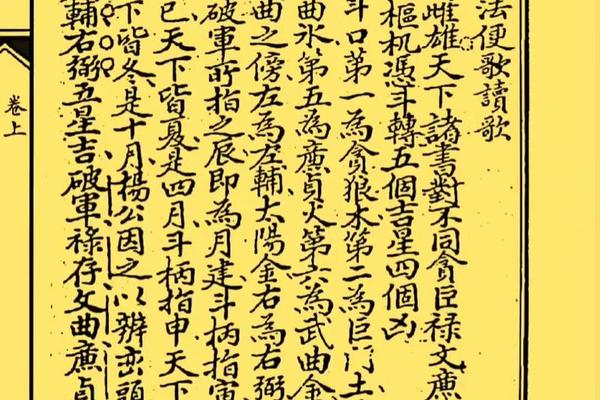 法便歌讀歌
雌雄天下諸書對不同貪臣祿文廉
樞机憑斗轉五個吉星四個凶
斗口第一為貪狼木第二為巨门土
曲水第五為廉貞火第六為武曲金
曲之傍左為左輔太陽金右為右弼
破軍所指之辰即為月建斗柄指寅
巳天下皆夏是四月斗柄指申天下
下皆冬是十月楊公因之以辨巒頭
輔右弼五星吉破軍祿存文曲廉貞
卷上